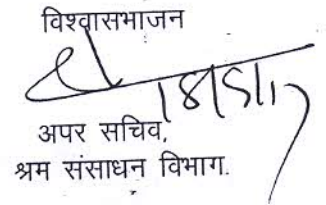 विश्वासभाजन
अपर सचिव,
श्रम संसाधन विभाग.